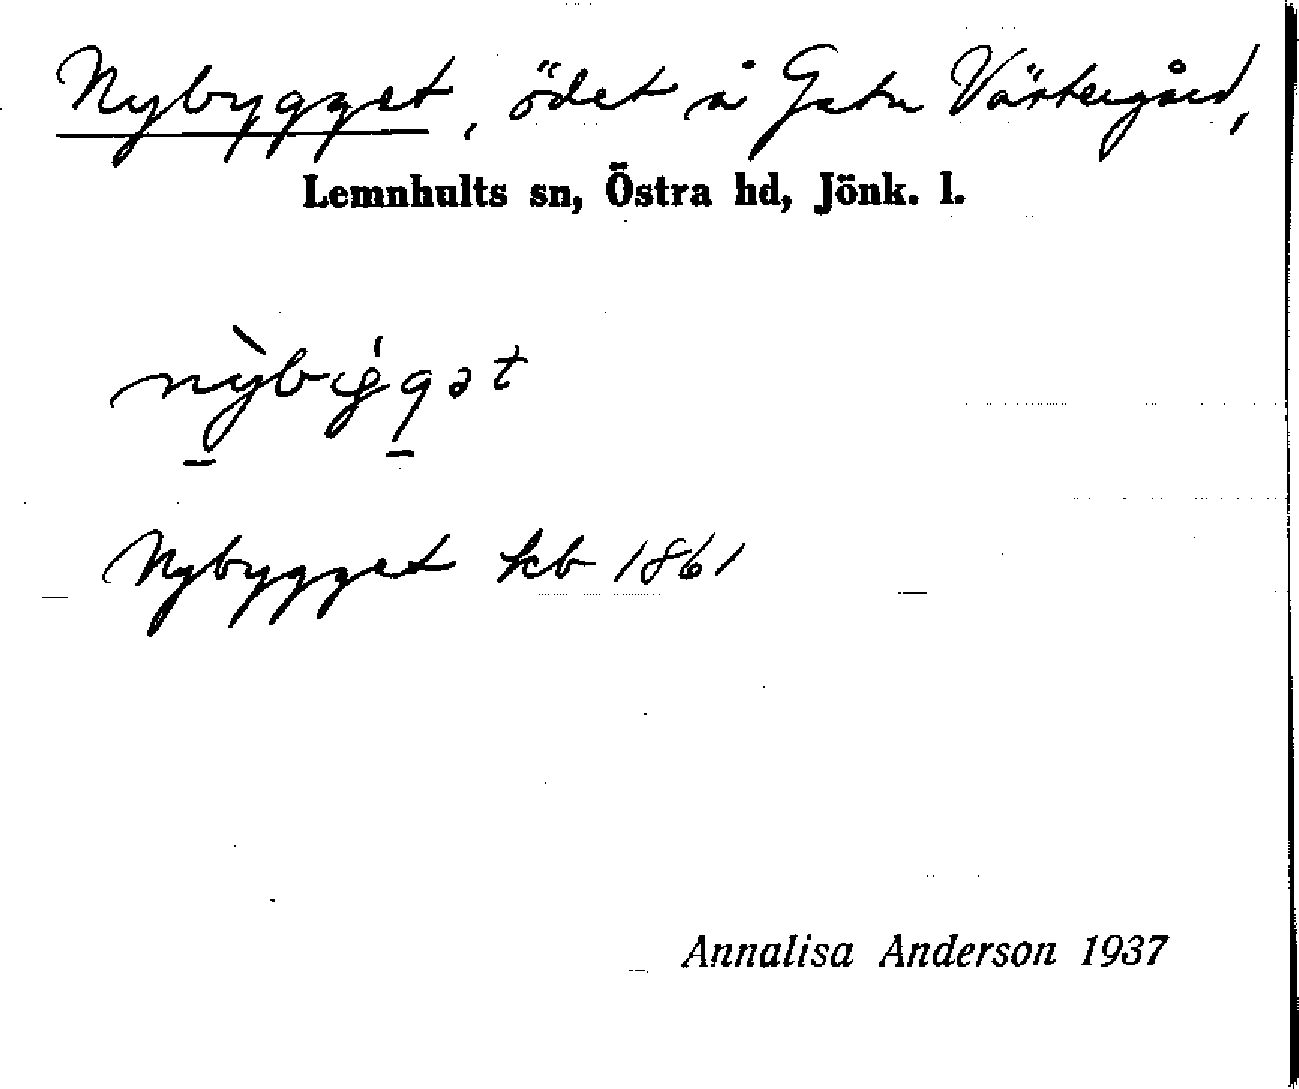 Nybygget, ödet å Gatu Västergård,
Lemnhults sn, Östra hd, Jönk. l.
Nybygget kb 1861
Annalisa Anderson 1937